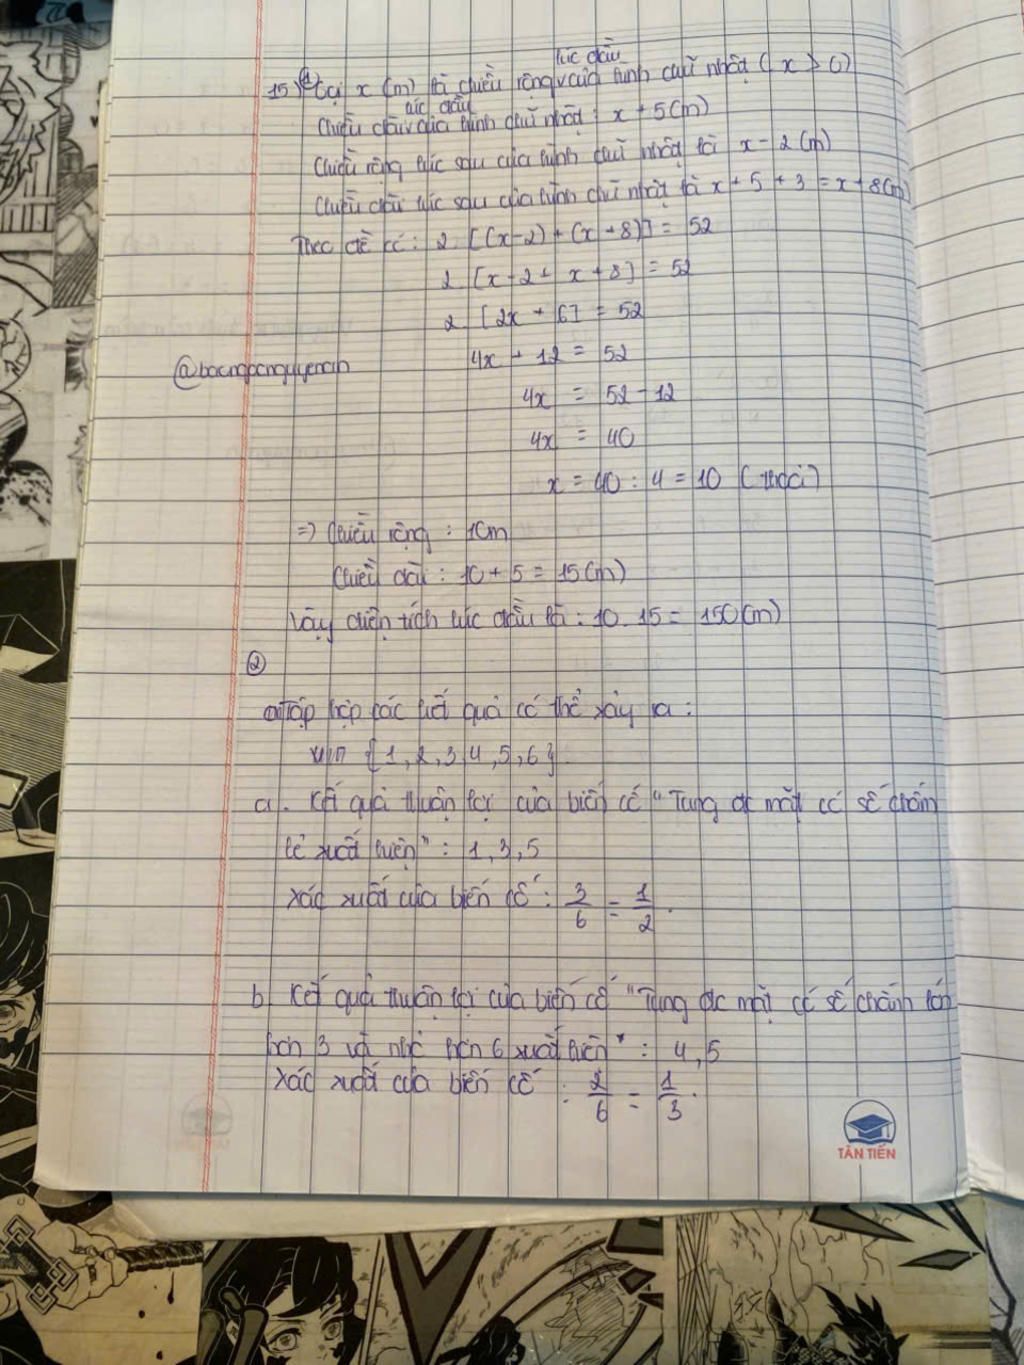 lúc đầu
15) ① Gọi x (m) là chiều rộng của hình chữ nhật (x > 0)
lúc đầu
Chiều dài của hình chữ nhật : x + 5 (m)
Chiều rộng lúc sau của hình chữ nhật là x - 2 (m)
Chiều dài lúc sau của hình chữ nhật là x + 5 + 3 = x + 8 (m)
Theo đề có : 2. [(x-2) + (x+8)] = 52
2. [x - 2 + x + 8] = 52
2. [2x + 6] = 52
4x + 12 = 52
@baongocnguyenan
4x = 52 - 12
4x = 40
x = 40 : 4 = 10 (thỏa)
=> Chiều rộng : 10m
Chiều dài : 10 + 5 = 15 (m)
Vậy diện tích lúc đầu là : 10 . 15 = 150 (m)
②
Tập hợp các kết quả có thể xảy ra :
{1, 2, 3, 4, 5, 6}
a. Kết quả thuận lợi của biến cố "Tung đc mặt có số chấm
lẻ xuất hiện" : 1, 3, 5
Xác xuất của biến cố : 3/6 = 1/2 .
b. Kết quả thuận lợi của biến cố "Tung đc mặt có số chấm lớn
hơn 3 và nhỏ hơn 6 xuất hiện" : 4, 5
Xác xuất của biến cố : 2/6 = 1/3 .
TÂN TIẾN